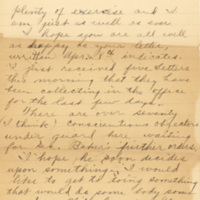 plenty of exercise and I
am just as well as ever.
I hope you are all well
as happy as your letter,
written April
I just received five letters
this morning that they have
been collecting in the office
for the last few days.
There are over seventy
I think conscientious objectors
under guard here waiting
for Sec. Baker's further orders.
I hope he soon decides
upon something. I would
like to get to doing something
that would do some body some